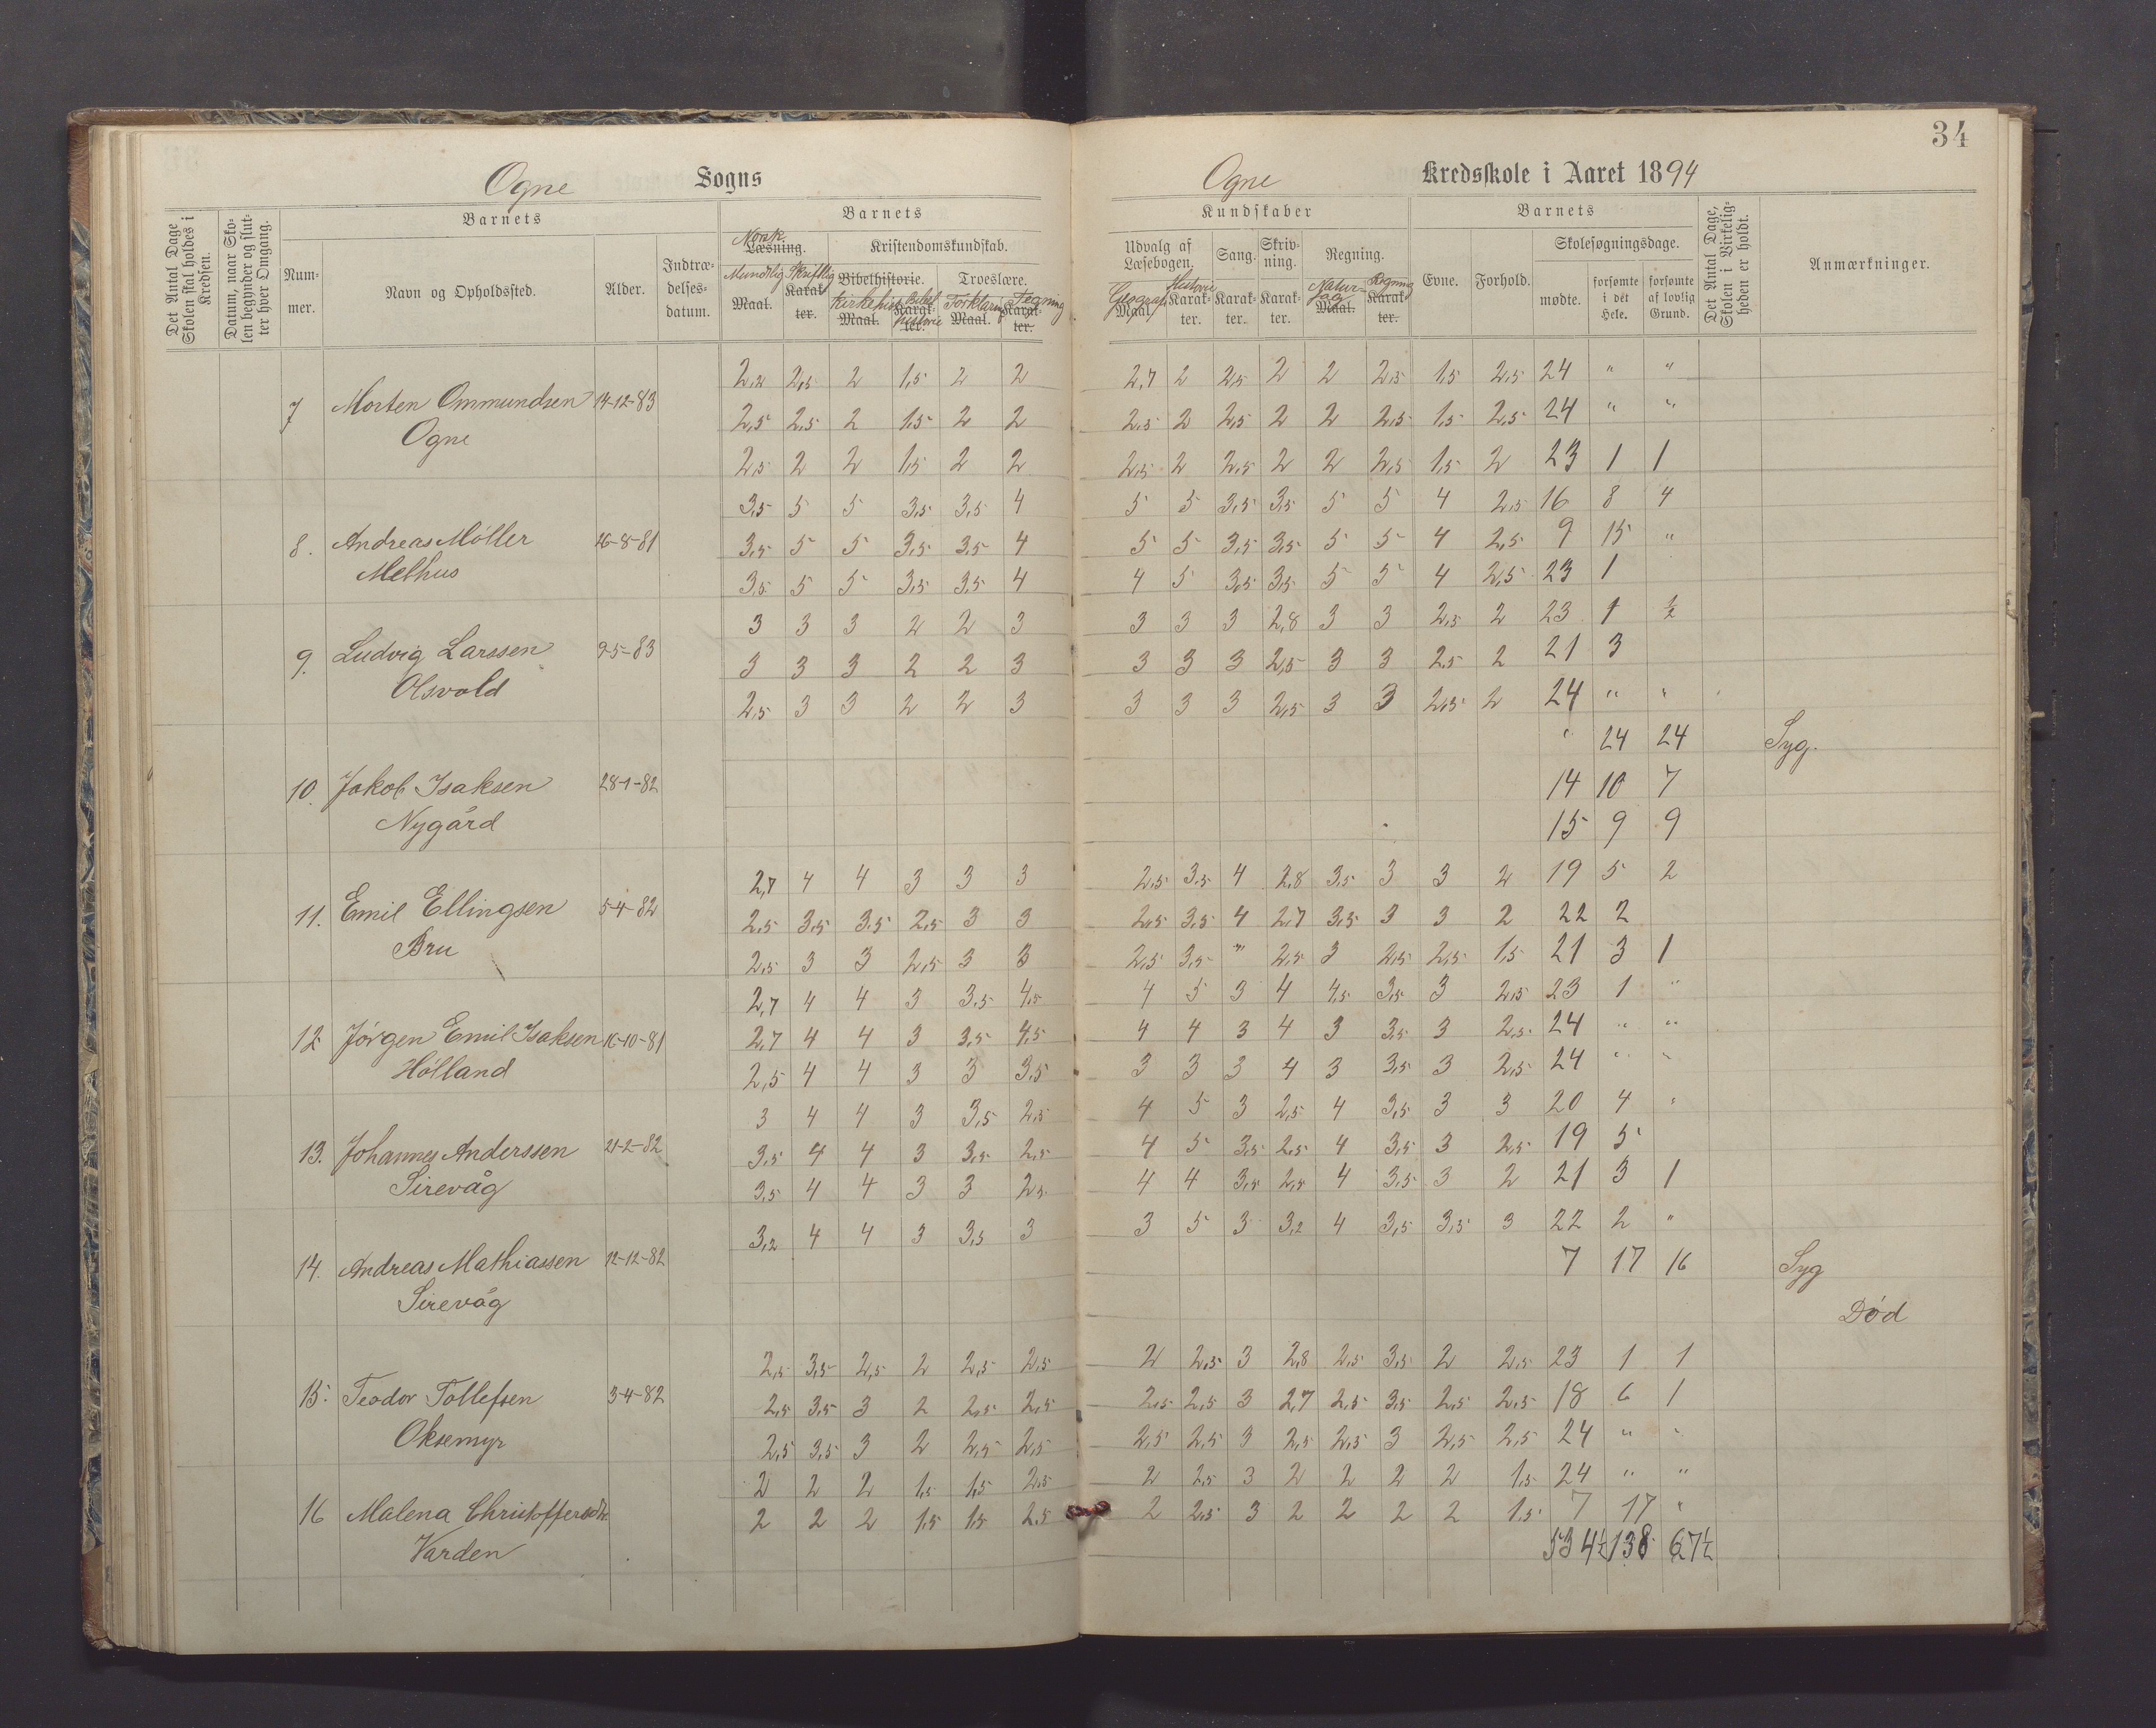 34
Ogne Sogns Ogne Kredsskole i Aaret 1894
Det Antal Dage Skolen skal holdes i Kredsen.
Datum, naar Skolen begynder og slutter hver Omgang.
Barnets
Nummer.
Navn og Opholdssted.
Alder.
Indtrædelsesdatum.
Barnets
Norsk
Læsning.
Mundtlig Skriftlig
Maal. Karakter.
Kristendomskundskab.
Bibelhistorie. Troeslære.
Kirkehist Bibelhistorie Forklaring Tegning
Maal. Karakter. Maal. Karakter.
Kundskaber
Udvalg af Læsebogen. Sang. Skrivning. Regning.
Geograf Historie Naturfag Regning
Maal. Karakter. Karakter. Karakter. Maal. Karakter.
Barnets
Evne. Forhold.
Skolesøgningsdage.
mødte. forsømte i det Hele. forsømte af lovlig Grund.
Det Antal Dage, Skolen i Virkeligheden er holdt.
Anmærkninger.
2,2 2,5 2 1,5 2 2 2,7 2 2,5 2 2 2,5 1,5 2,5 24 " "
7 Morten Ommundsen 14-12-83
2,5 2,5 2 1,5 2 2 2,5 2 2,5 2 2 2,5 1,5 2,5 24 " "
Ogne
2,5 2 2 1,5 2 2 2,5 2 2,5 2 2 2,5 1,5 2 23 1 1
3,5 5 5 3,5 3,5 4 5 5 3,5 3,5 5 5 4 2,5 16 8 4
8. Andreas Møller 26-8-81
3,5 5 5 3,5 3,5 4 5 5 3,5 3,5 5 5 4 2,5 9 15 "
Melhus
3,5 5 5 3,5 3,5 4 4 5 3,5 3,5 5 5 4 2,5 23 1
3 3 3 2 2 3 3 3 3 2,8 3 3 2,5 2 23 1 ½
9. Ludvig Larssen 9-5-83
3 3 3 2 2 3 3 3 3 2,5 3 3 2,5 2 21 3
Olsvold
2,5 3 3 2 2 3 3 3 3 2,5 3 3 2,5 2 24 " "
" 24 24 Syg.
10. Jakob Isaksen 28-1-82
14 10 7
Nygård
15 9 9
2,7 4 4 3 3 3 2,5 3,5 4 2,8 3,5 3 3 2 19 5 2
11. Emil Ellingsen 5-4-82
2,5 3,5 3,5 2,5 3 3 2,5 3,5 4 2,7 3,5 3 3 2 22 2
Bru
2,5 3 3 2,5 3 3 2,5 3,5 " 2,5 3 2,5 2,5 1,5 21 3 1
2,7 4 4 3 3,5 4,5 4 5 3 4 4,5 3,5 3 2,5 23 1 "
12 Jørgen Emil Isaksen 16-10-81
2,7 4 4 3 3,5 4,5 4 4 3 4 3 3,5 3 2,5 24 " "
Hølland
2,5 4 4 3 3 3,5 3 3 3 4 3 3,5 3 2,5 24 " "
3 4 4 3 3,5 2,5 4 5 3 2,5 4 3,5 3 3 20 4 "
13. Johannes Anderssen 21-2-82
3,5 4 4 3 3,5 2,5 4 5 3,5 2,5 4 3,5 3 2,5 19 5
Sirevåg
3,5 4 4 3 3 2,5 4 4 3,5 2,5 4 3,5 3 2 21 3 1
3,2 4 4 3 3,5 3 3 5 3 3,2 4 3,5 3,5 3 22 2 "
14. Andreas Mathiassen 12-12-82
7 17 16 Syg
Sirevåg
Død
2,5 3,5 2,5 2 2,5 2,5 2 2,5 3 2,8 2,5 3,5 2 2,5 23 1 1
15. Teodor Tollefsen 3-4-82
2,5 3,5 3 2 2,5 2,5 2,5 2,5 3 2,7 2,5 3,5 2,5 2,5 18 6 1
Oksemyr
2,5 3,5 3 2 2,5 2,5 2,5 2,5 3 2,5 2,5 3 2,5 2,5 24 " "
2 2 2 1,5 1,5 2,5 2 2,5 3 2 2 2 2 1,5 24 " "
16 Malena Christoffersdtr.
2 2 2 1,5 1,5 2,5 2 2,5 3 2 2 2 2 1,5 7 17 "
Varden
534½ 138 67½